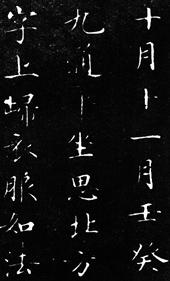 十月十一月壬癸
九過下坐思北方
字上歸衣服如法